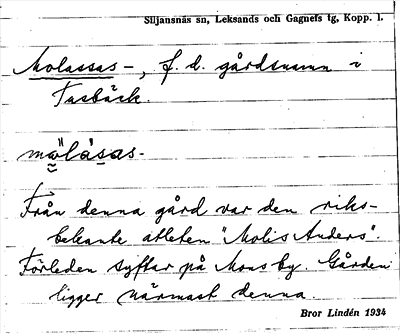 Siljansnäs sn, Leksands och Gagnefs tg, Kopp. l.
Molassas-, f. d. gårdsnamn i
Tasbäck.
mω̈lásas-
Från denna gård var den riks-
bekante atleten "Molis Anders".
Förleden syftar på Mons by. Gården
ligger närmast denna.
Bror Lindén 1934